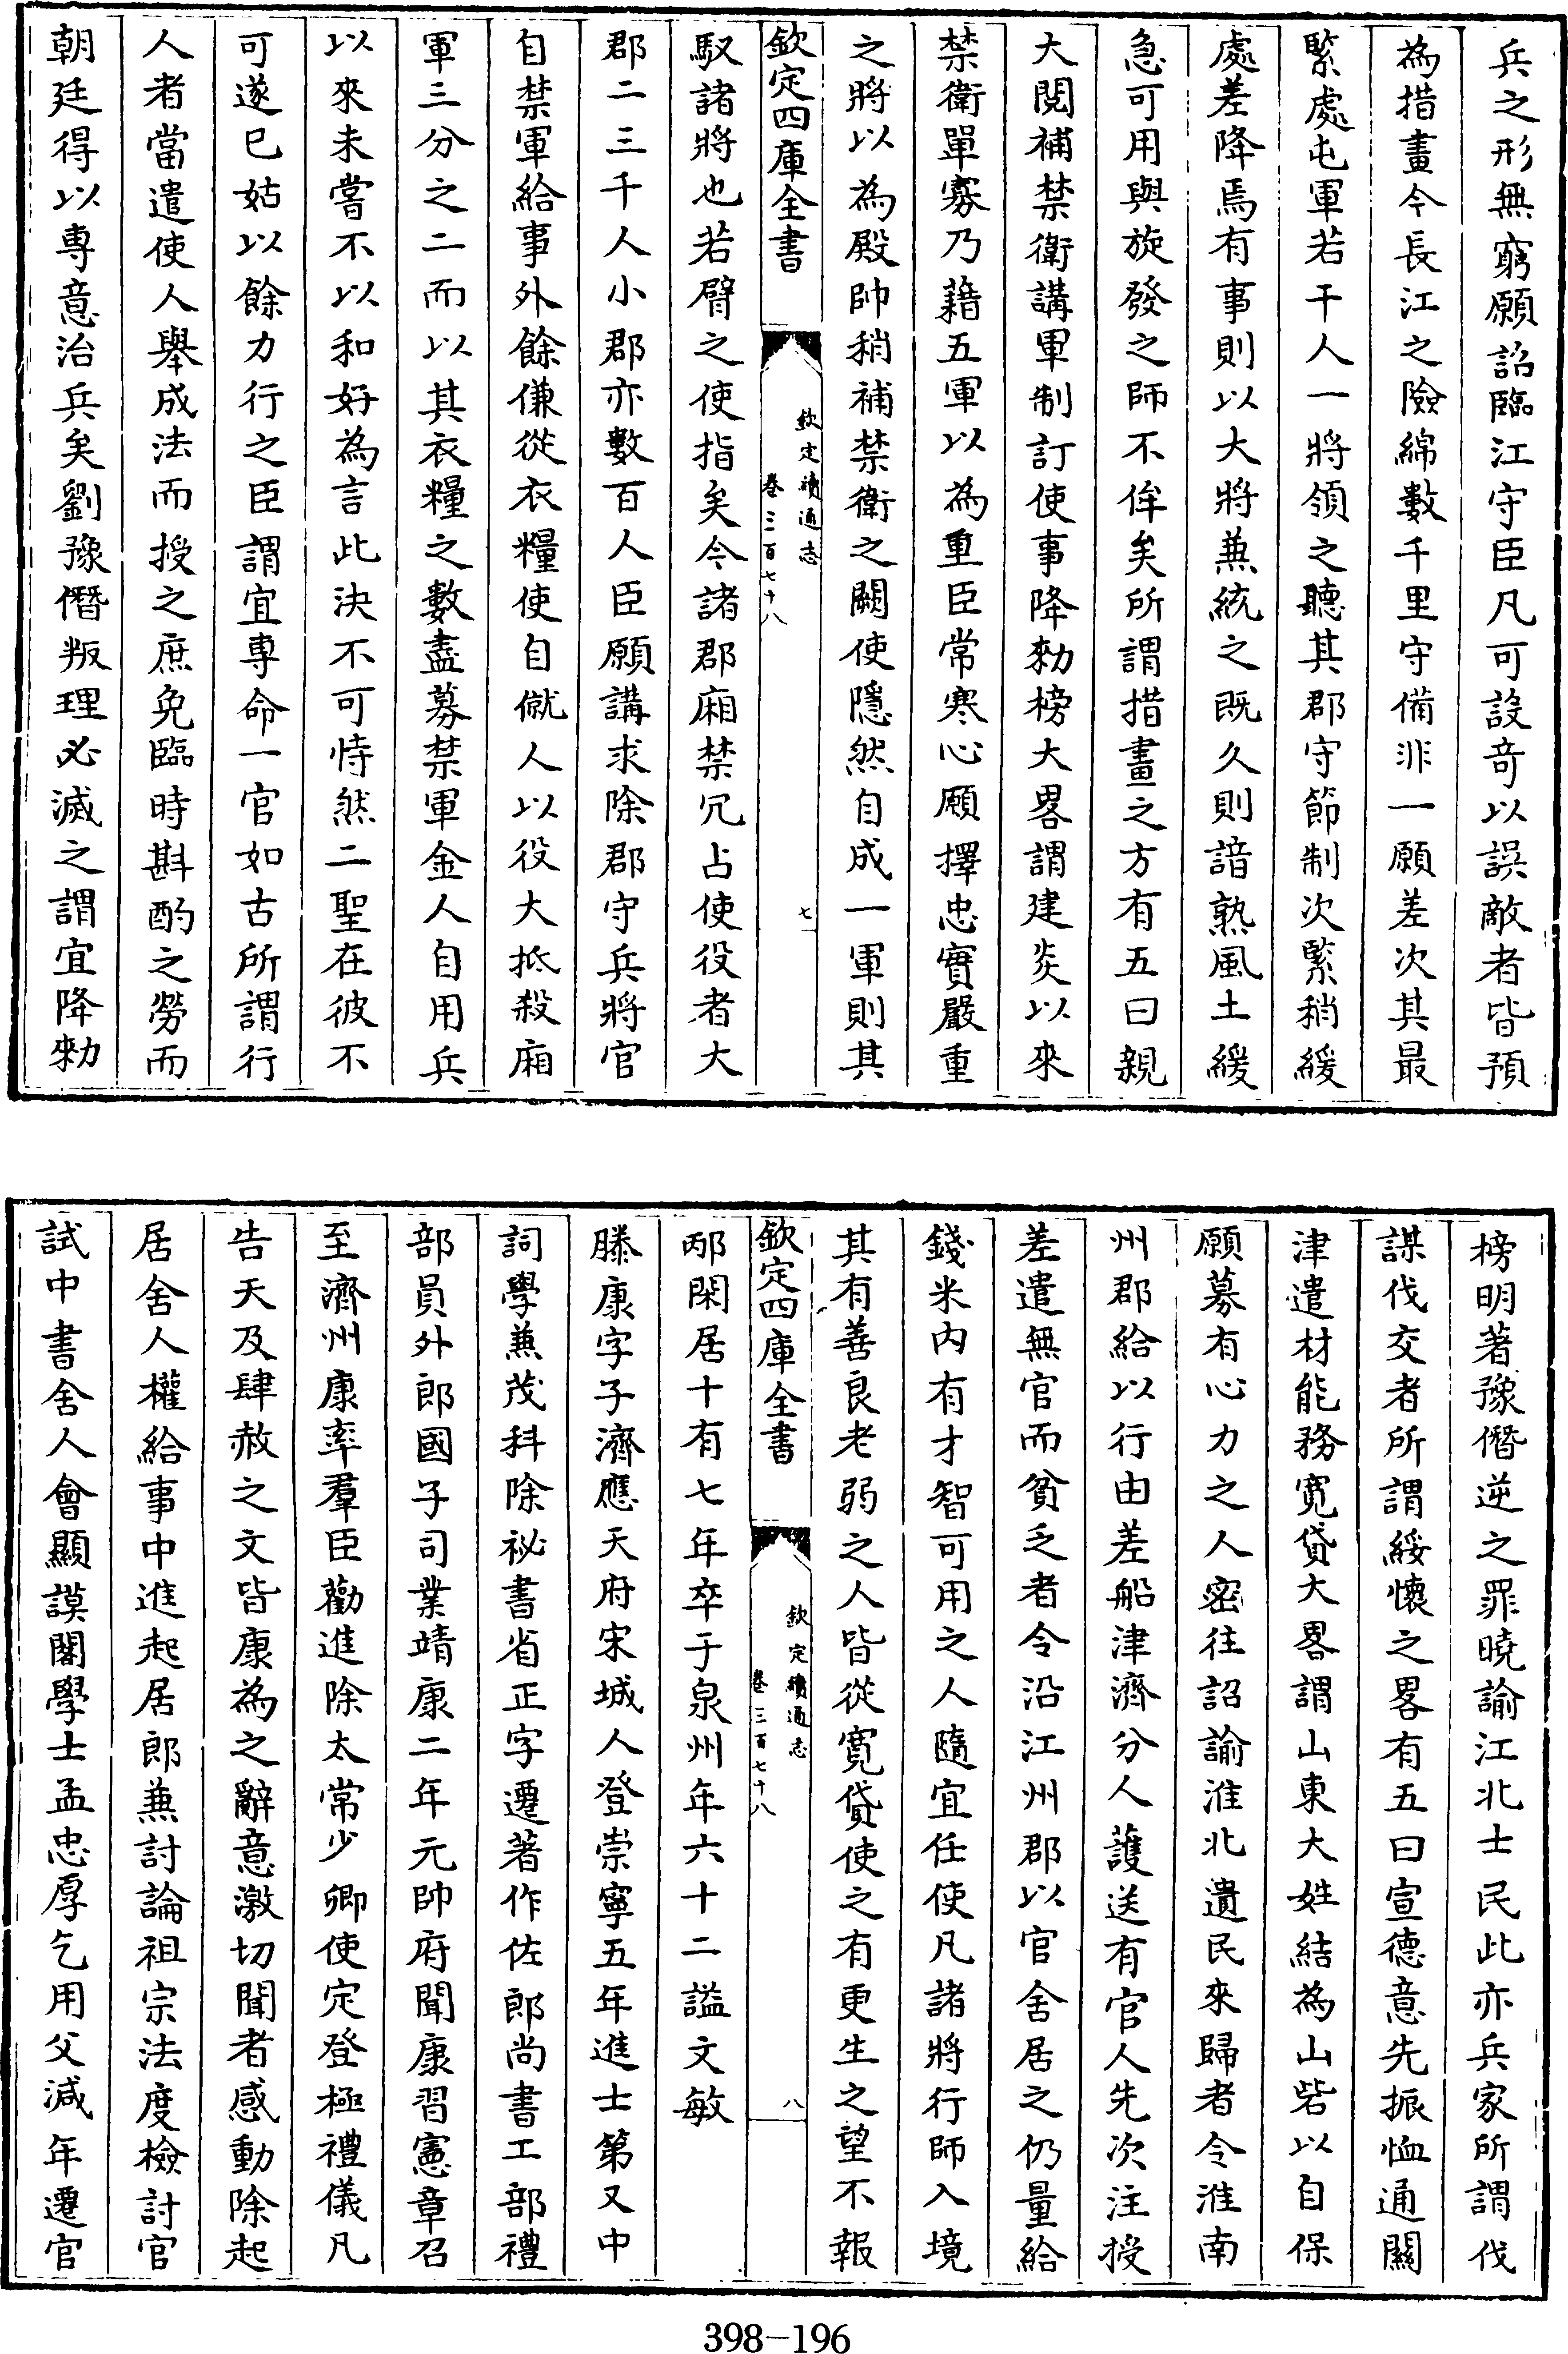 兵之形無窮願詔臨江守臣凡可設竒以誤敵者皆預
為措畫今長江之險綿數千里守備非一願差次其最
緊處屯軍若干人一將領之聽其郡守節制次緊稍緩
處差降焉有事則以大將兼統之既久則諳熟風土緩
急可用與旋發之師不侔矣所謂措畫之方有五曰親
大閱補禁衛講軍制訂使事降勑榜大畧謂建炎以來
禁衛單寡乃藉五軍以為重臣常寒心願擇忠實嚴重
之將以為殿帥稍補禁衛之闕使隱然自成一軍則其
欽定四庫全書
欽定續通志
卷三百七十八
七
馭諸將也若臂之使指矣今諸郡廂禁冗占使役者大
郡二三千人小郡亦數百人臣願講求除郡守兵將官
自禁軍給事外餘傔從衣糧使自僦人以役大抵殺廂
軍三分之二而以其衣糧之數盡募禁軍金人自用兵
以來未嘗不以和好為言此決不可恃然二聖在彼不
可遂已姑以餘力行之臣謂宜專命一官如古所謂行
人者當遣使人舉成法而授之庶免臨時斟酌之勞而
朝廷得以專意治兵矣劉豫僭叛理必滅之謂宜降勑
榜明著豫僭逆之罪曉諭江北士民此亦兵家所謂伐
謀伐交者所謂綏懷之畧有五曰宣德意先振恤通關
津遣材能務寛貸大畧謂山東大姓結為山砦以自保
願募有心力之人密往詔諭淮北遺民來歸者令淮南
州郡給以行由差船津濟分人護送有官人先次注授
差遣無官而貧乏者令沿江州郡以官舍居之仍量給
錢米内有才智可用之人隨宜任使凡諸將行師入境
其有善良老弱之人皆從寛貸使之有更生之望不報
欽定四庫全書
欽定續通志
卷三百七十八
八
邴閑居十有七年卒于泉州年六十二謚文敏
滕康字子濟應天府宋城人登崇寧五年進士第又中
詞學兼茂科除祕書省正字遷著作佐郎尚書工部禮
部員外郎國子司業靖康二年元帥府聞康習憲章召
至濟州康率羣臣勸進除太常少卿使定登極禮儀凡
告天及肆赦之文皆康為之辭意激切聞者感動除起
居舍人權給事中進起居郎兼討論祖宗法度檢討官
試中書舍人會顯謨閣學士孟忠厚乞用父減年遷官
398-196